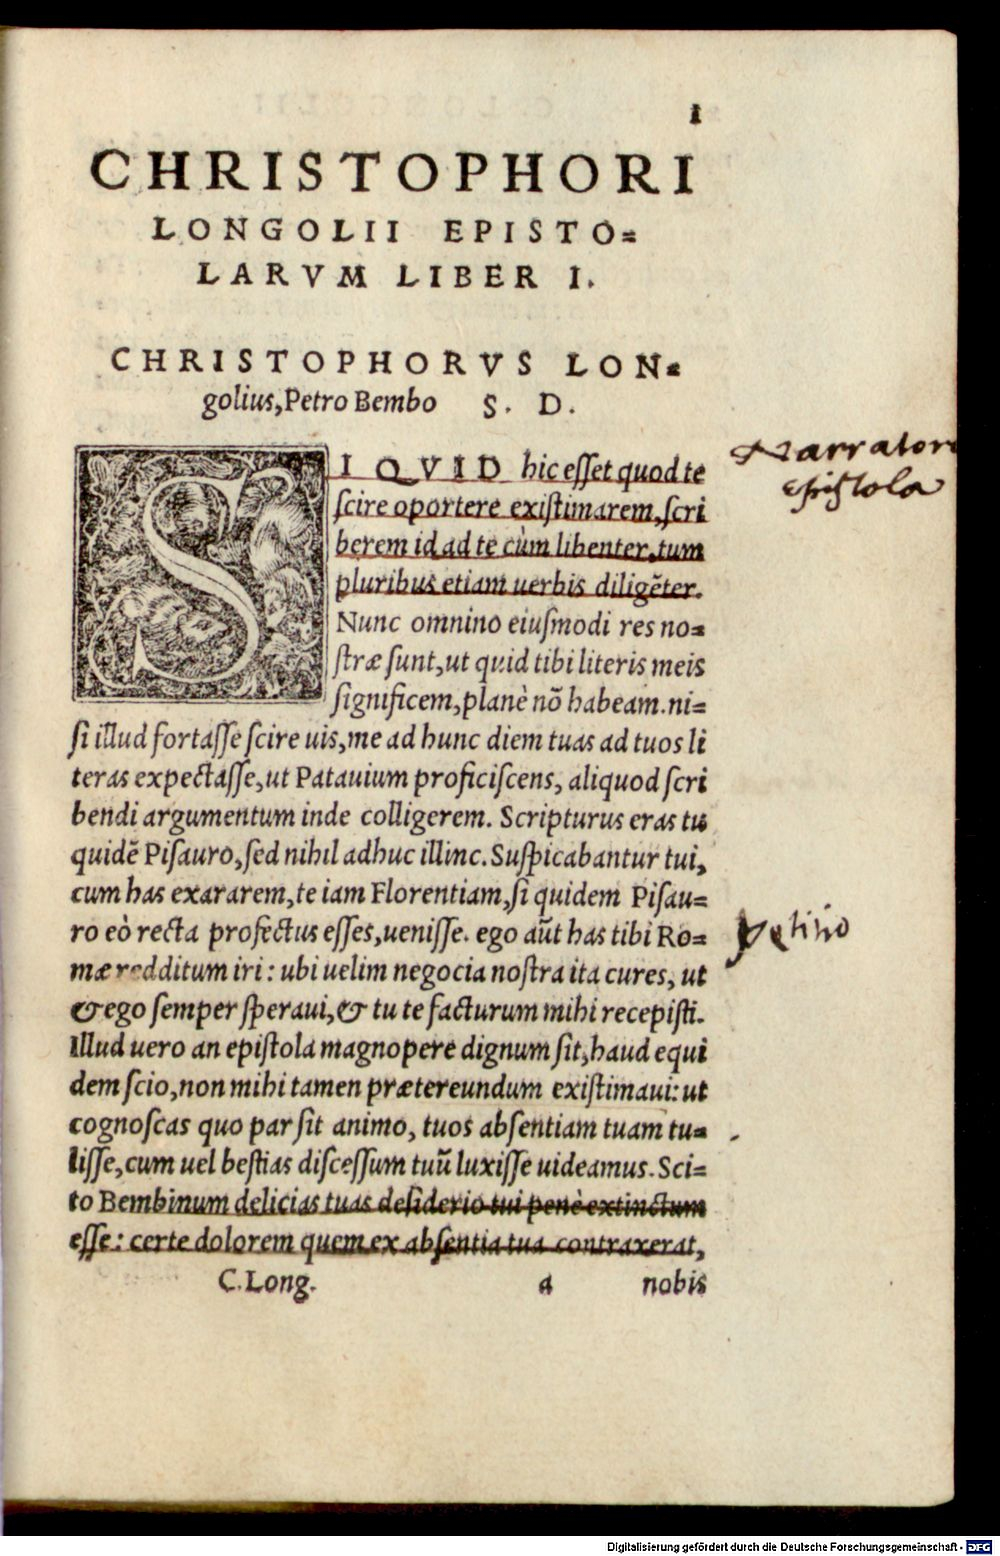 1
CHRISTOPHORI
LONGOLII EPISTO=
LARVM LIBER I.
CHRISTOPHORVS LON=
golius, Petro Bembo S. D.
SI QVID hic esset quod te
scire oportere existimarem, scri
berem id ad te cùm libenter, tum
pluribus etiam uerbis diligẽter.
Nunc omnino eiusmodi res no=
stræ sunt, ut quid tibi literis meis
significem, planè nõ habeam. ni=
si illud fortasse scire uis, me ad hunc diem tuas ad tuos li
teras expectasse, ut Patauium proficiscens, aliquod scri
bendi argumentum inde colligerem. Scripturus eras tu
quidẽ Pisauro, sed nihil adhuc illinc. Suspicabantur tui,
cum has exararem, te iam Florentiam, si quidem Pisau=
ro eò recta profectus esses, uenisse. ego aũt has tibi Ro=
mæ redditum iri: ubi uelim negocia nostra ita cures, ut
& ego semper speraui, & tu te facturum mihi recepisti.
Illud uero an epistola magnopere dignum sit, haud equi
dem scio, non mihi tamen prætereundum existimaui: ut
cognoscas quo par sit animo, tuos absentiam tuam tu=
lisse, cum uel bestias discessum tuũ luxisse uideamus. Sci=
to Bembinum delicias tuas desiderio tui penè extinctum
esse: certe dolorem quem ex absentia tua contraxerat,
C. Long. a nobis
Narratori
epistola
petitio
Digitalisierung gefördert durch die Deutsche Forschungsgemeinschaft - DFG